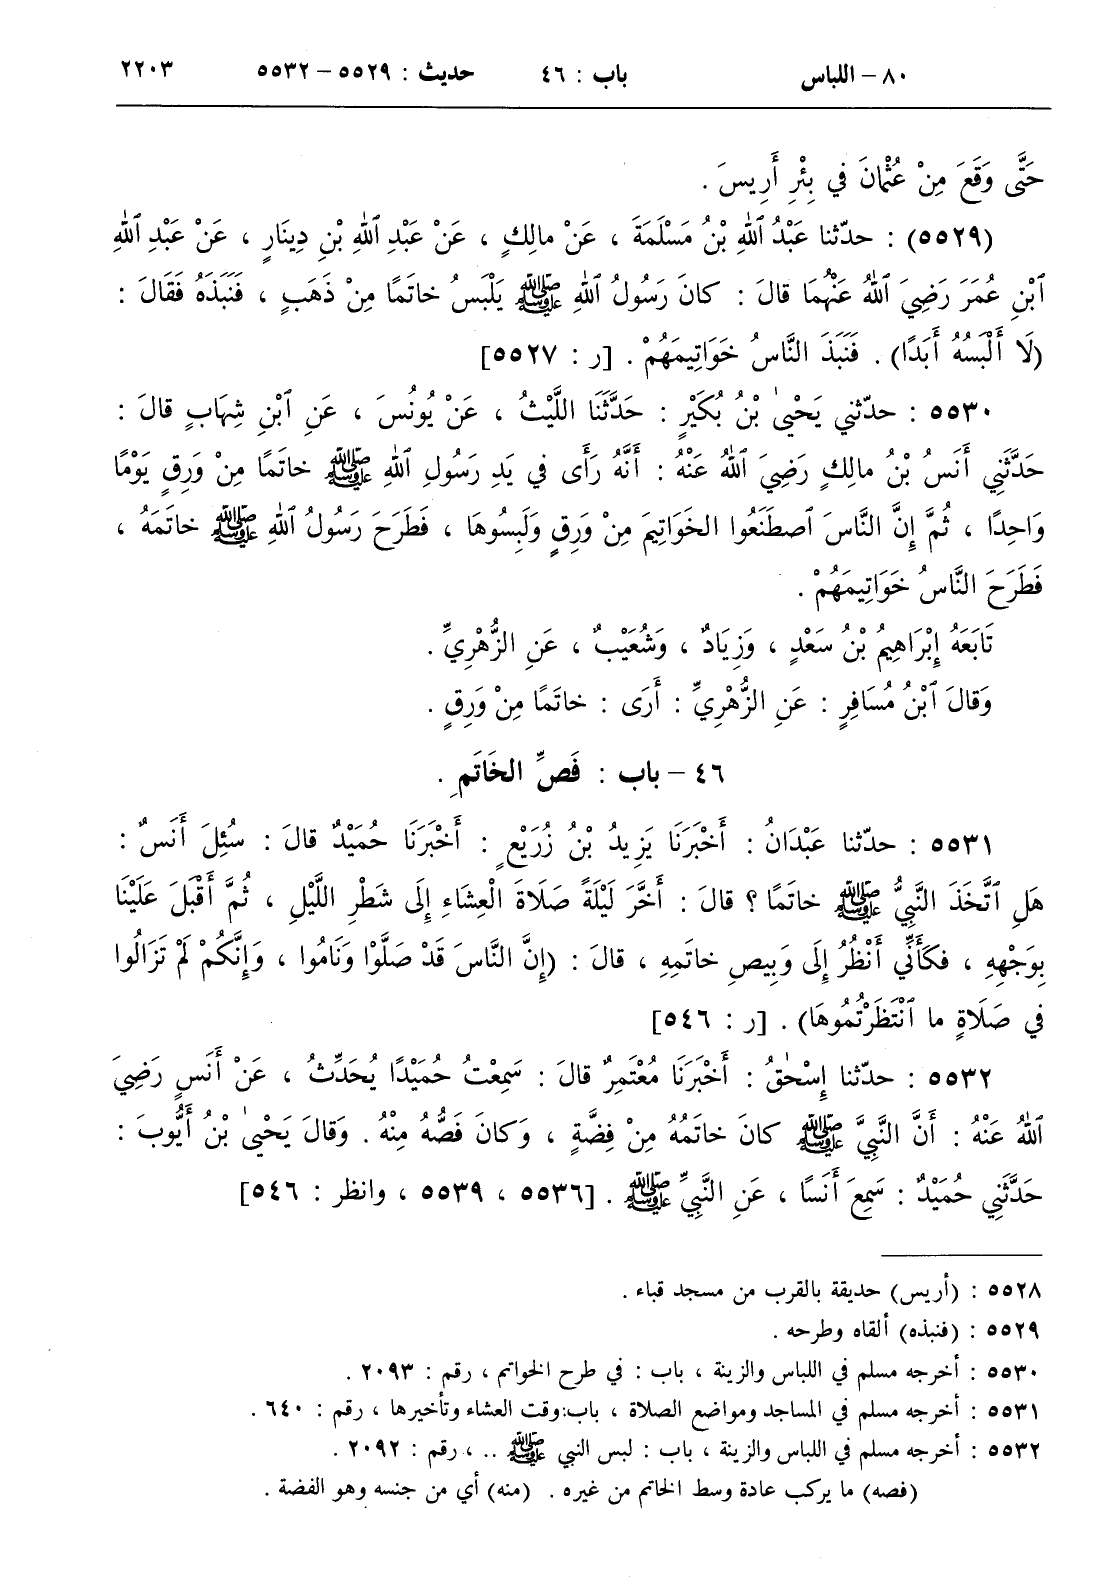 ٨٠ – اللباس باب : ٤٦ حديث : ٥٥٢٩ – ٥٥٣٢ ٢٢٠٣
حَتَّى وَقَعَ مِنْ عُثْمَانَ في بِئْرِ أَرِيسَ .
(٥٥٢٩) : حدّثنا عَبْدُ ٱللهِ بْنُ مَسْلَمَةَ ، عَنْ مالِكٍ ، عَنْ عَبْدِ ٱللهِ بْنِ دِينَارٍ ، عَنْ عَبْدِ ٱللهِ
ٱبْنِ عُمَرَ رَضِيَ ٱللهُ عَنْهُمَا قالَ : كانَ رَسُولُ ٱللهِ ﷺ يَلْبَسُ خاتَمًا مِنْ ذَهَبٍ ، فَنَبَذَهُ فَقَالَ :
(لَا أَلْبَسُهُ أَبَدًا) . فَنَبَذَ النَّاسُ خَوَاتِيمَهُمْ . [ر : ٥٥٢٧]
٥٥٣٠ : حدّثني يَحْيىٰ بْنُ بُكَيْرٍ : حَدَّثَنَا اللَّيْثُ ، عَنْ يُونُسَ ، عَنِ ٱبْنِ شِهَابٍ قالَ :
حَدَّثَنِي أَنَسُ بْنُ مالِكٍ رَضِيَ ٱللهُ عَنْهُ : أَنَّهُ رَأَى في يَدِ رَسُولِ ٱللهِ ﷺ خاتَمًا مِنْ وَرِقٍ يَوْمًا
وَاحِدًا ، ثُمَّ إِنَّ النَّاسَ ٱصطَنَعُوا الخَوَاتِيمَ مِنْ وَرِقٍ وَلَبِسُوهَا ، فَطَرَحَ رَسُولُ ٱللهِ ﷺ خاتَمَهُ ،
فَطَرَحَ النَّاسُ خَوَاتِيمَهُمْ .
تَابَعَهُ إِبْرَاهِيمُ بْنُ سَعْدٍ ، وَزِيَادٌ ، وَشُعَيْبٌ ، عَنِ الزُّهْرِيِّ .
وَقالَ ٱبْنُ مُسَافِرٍ : عَنِ الزُّهْرِيِّ : أَرَى : خاتَمًا مِنْ وَرِقٍ .
٤٦ – باب : فَصِّ الخَاتَمِ .
٥٥٣١ : حدّثنا عَبْدَانُ : أَخْبَرَنَا يَزِيدُ بْنُ زُرَيْعٍ : أَخْبَرَنَا حُمَيْدٌ قالَ : سُئِلَ أَنَسٌ :
هَلِ ٱتَّخَذَ النَّبِيُّ ﷺ خاتَمًا ؟ قالَ : أَخَّرَ لَيْلَةً صَلَاةَ الْعِشَاءِ إِلَى شَطْرِ اللَّيْلِ ، ثُمَّ أَقْبَلَ عَلَيْنَا
بِوَجْهِهِ ، فكَأَنِّي أَنْظُرُ إِلَى وَبِيصِ خاتَمِهِ ، قالَ : (إِنَّ النَّاسَ قَدْ صَلَّوْا وَنَامُوا ، وَإِنَّكُمْ لَمْ تَزَالُوا
في صَلَاةٍ ما ٱنْتَظَرْتُمُوهَا) . [ر : ٥٤٦]
٥٥٣٢ : حدّثنا إِسْحٰقُ : أَخْبَرَنَا مُعْتَمِرٌ قالَ : سَمِعْتُ حُمَيْدًا يُحَدِّثُ ، عَنْ أَنَسٍ رَضِيَ
ٱللهُ عَنْهُ : أَنَّ النَّبِيَّ ﷺ كانَ خاتَمُهُ مِنْ فِضَّةٍ ، وَكانَ فَصُّهُ مِنْهُ . وَقالَ يَحْيىٰ بْنُ أَيُّوبَ :
حَدَّثَنِي حُمَيْدٌ : سَمِعَ أَنَسًا ، عَنِ النَّبِيِّ ﷺ . [٥٥٣٦ ، ٥٥٣٩ ، وانظر : ٥٤٦]
٥٥٢٨ : (أريس) حديقة بالقرب من مسجد قباء .
٥٥٢٩ : (فنبذه) ألقاه وطرحه .
٥٥٣٠ : أخرجه مسلم في اللباس والزينة ، باب : في طرح الخواتم ، رقم : ٢٠٩٣ .
٥٥٣١ : أخرجه مسلم في المساجد ومواضع الصلاة ، باب:وقت العشاء وتأخيرها ، رقم : ٦٤٠ .
٥٥٣٢ : أخرجه مسلم في اللباس والزينة ، باب : لبس النبي ﷺ .. ، رقم : ٢٠٩٢ .
(فصه) ما يركب عادة وسط الخاتم من غيره . (منه) أي من جنسه وهو الفضة .